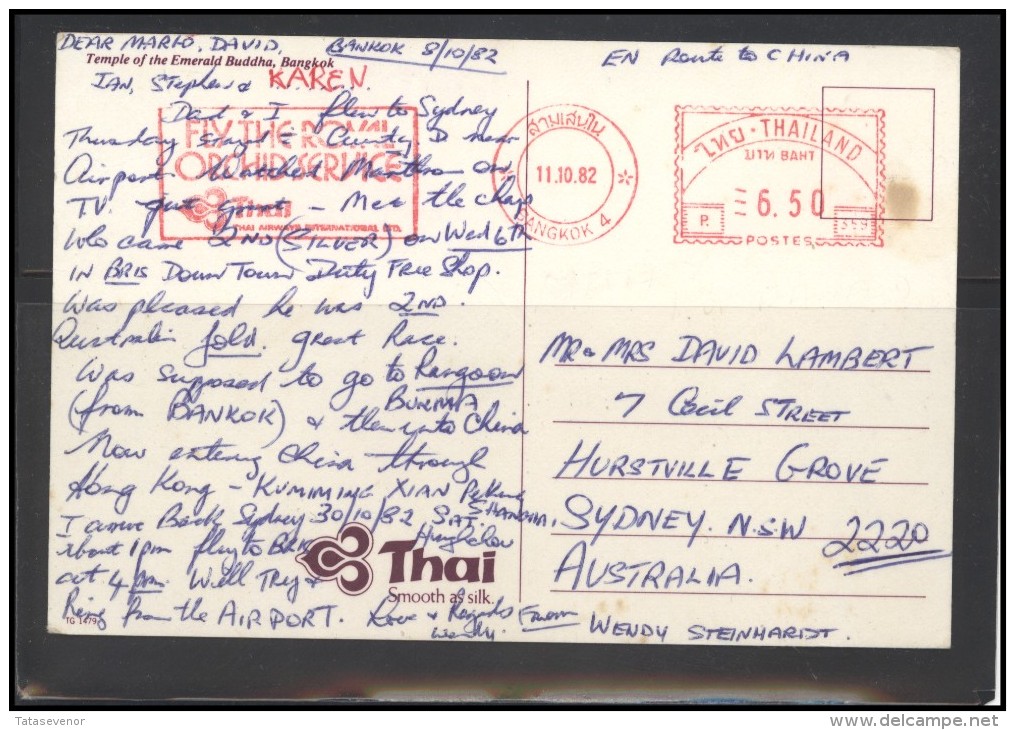 DEAR MARIO, DAVID, BANKOK 8/10/82
EN Route to CHINA
Temple of the Emerald Buddha, Bangkok
IAN, Stephen & KAREN.
Dad & I flew to Sydney
Thursday stayed County D near
Airport Watched Marathon on
TV. - Met the chap
Who came 2ND (SILVER) on Wed 6th
IN BRIS Down Town Duty Free Shop.
Was pleased he was 2ND.
Australia Gold. great Race.
Was supposed to go to Rangoon
BURMA
(from BANKOK) & then into China
Now entering China through
Hong Kong - KUMIMING XIAN Peking
SHANGHAI
I arrive Back Sydney 30/10/82 SAT. Hangchow
about 1pm fly to BRIS
at 4 pm. Well Try &
Ring from the AIRPORT. Love & Regards
Wendy.
FLY THE ROYAL
ORCHID SERVICE
Thai
THAI AIRWAYS INTERNATIONAL LTD.
สามเสนใน
11.10.82
BANGKOK 4
ไทย · THAILAND
บาท BAHT
6.50
P.
POSTES
MR & MRS DAVID LAMBERT
7 Cecil STREET
HURSTVILLE GROVE
SYDNEY. N.S.W 2220
AUSTRALIA.
Thai
Smooth as silk.
TG 1479
From WENDY STEINHARDT.
Tatasevenor
delcampe.net